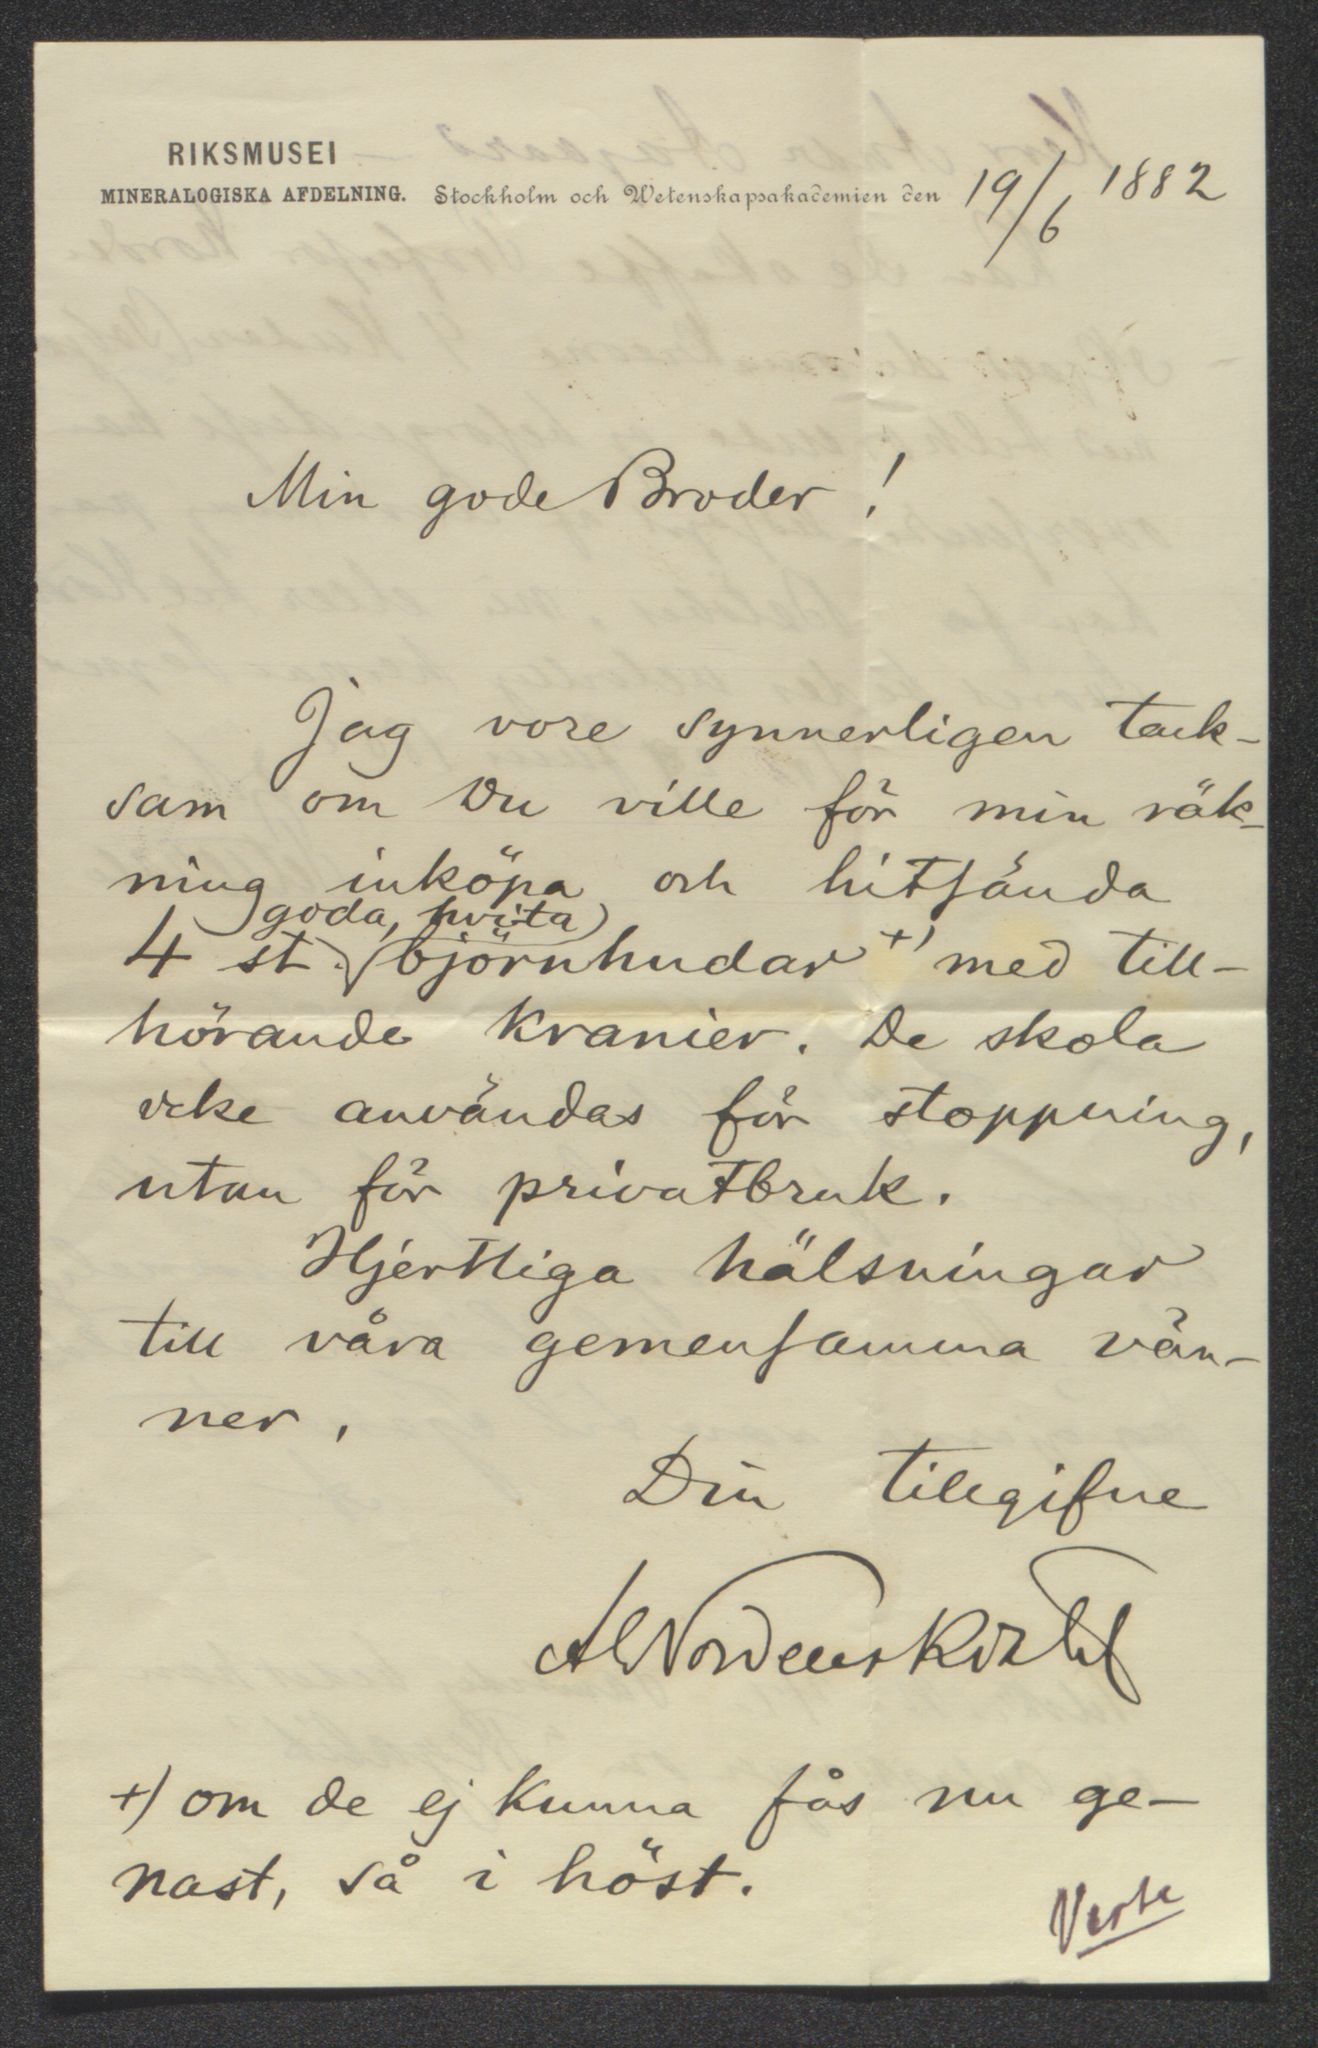 RIKSMUSEI
MINERALOGISKA AFDELNING. Stockholm och Wetenskapsakademien den 19/6 1882
Min gode Broder!
Jag vore synnerligen tack-
sam om Du ville för min räk-
ning inköpa och hitsända
goda, hvita
4 st. björnhudar +) med till-
hörande kranier. De skola
icke användas för stoppning,
utan för privatbruk.
Hjertliga hälsningar
till våra gemensamma vän-
ner.
Din tillgifne
AENordenskiöld
+) om de ej kunna fås nu ge-
nast, så i höst.
Verte